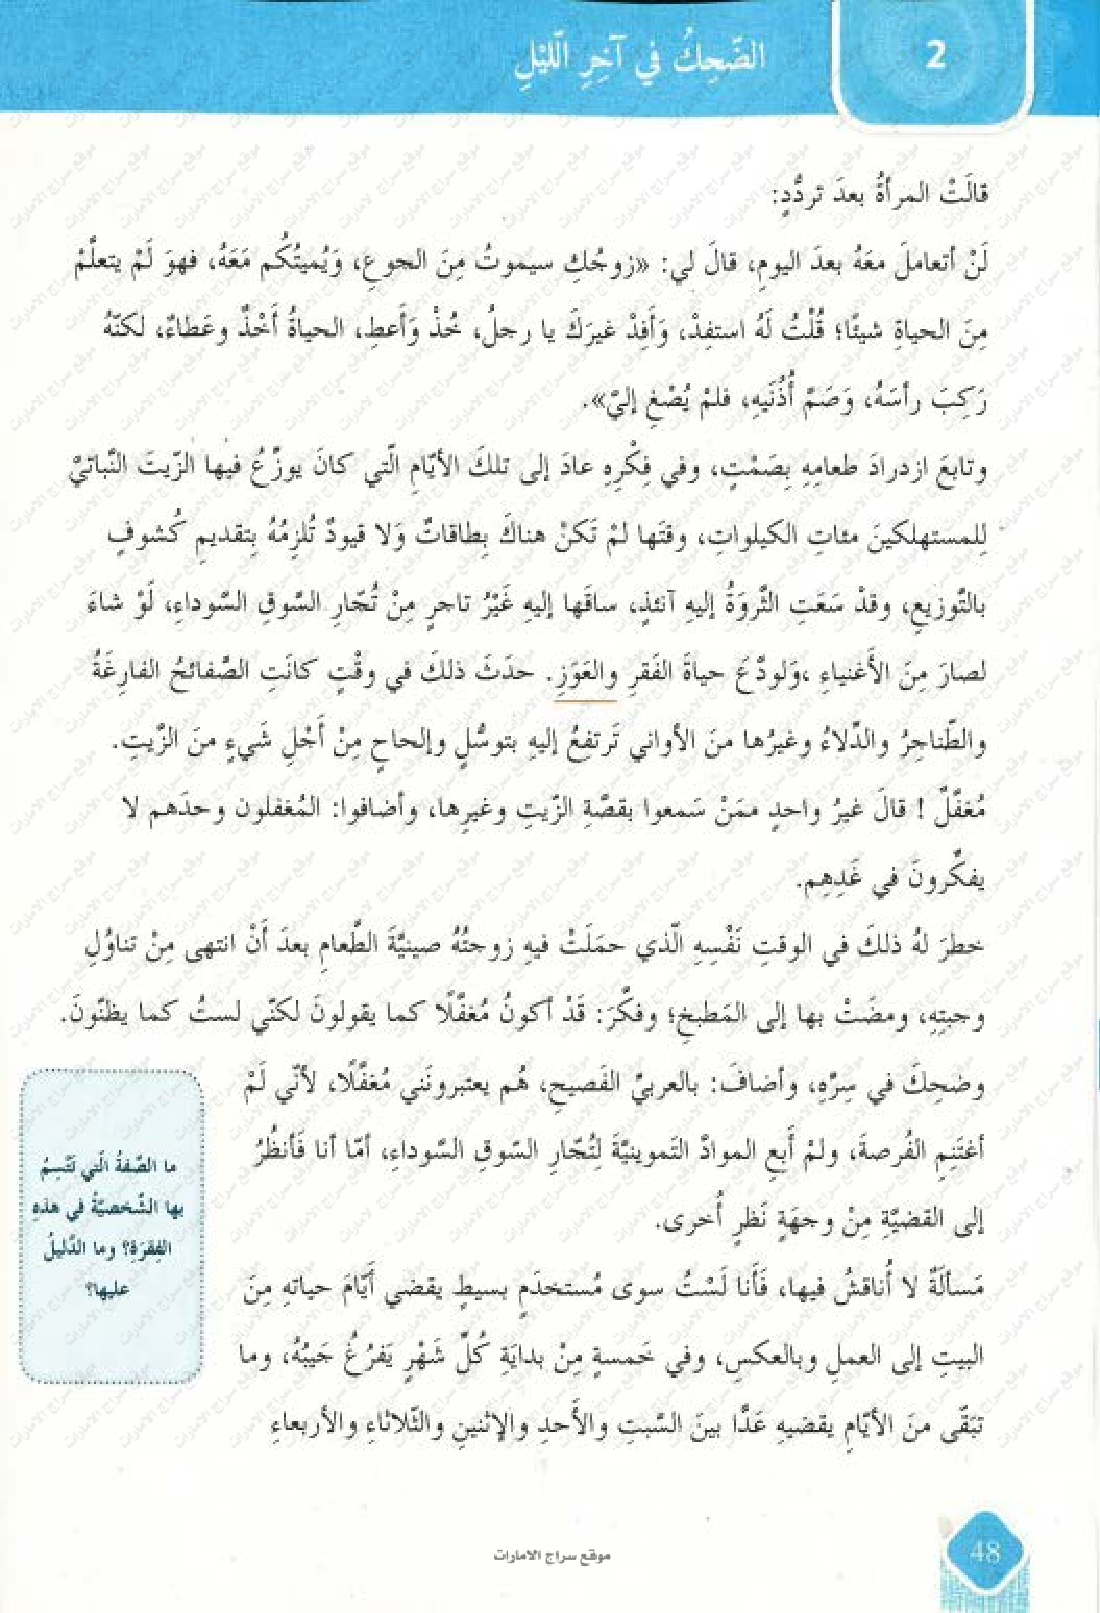 2
الضّحِكُ في آخِرِ الّليْلِ
قالَتْ المرأةُ بعدَ تردُّدٍ:
لَنْ أتعاملَ معَهُ بعدَ اليومِ، قالَ لي: «زوجُكِ سيموتُ مِنَ الجوعِ، وَيُميتُكُم مَعَهُ، فهوَ لَمْ يتعلَّمْ
مِنَ الحياةِ شيئًا؛ قُلْتُ لَهُ استفِدْ، وَأَفِدْ غيرَكَ يا رجلُ، خُذْ وَأَعطِ، الحياةُ أَخْذٌ وعَطاءٌ، لكنّهُ
رَكِبَ رأسَهُ، وَصَمَّ أُذُنَيهِ، فلمْ يُصْغِ إليّ».
وتابعَ ازدرادَ طعامِهِ بِصَمْتٍ، وفي فِكْرِهِ عادَ إلى تلكَ الأيّامِ الّتي كانَ يوزِّعُ فيها الزّيتَ النّباتيَّ
لِلمستهلكينَ مئاتِ الكيلواتِ، وقتَها لمْ تَكنْ هناكَ بِطاقاتٌ وَلا قيودٌ تُلزِمُهُ بِتقديمِ كُشوفٍ
بالتّوزيعِ، وقدْ سَعَتِ الثَّروَةُ إليهِ آنئذٍ، ساقَها إليهِ غَيْرُ تاجرٍ مِنْ تُجّارِ السّوقِ السّوداءِ، لَوْ شاءَ
لصارَ مِنَ الأَغنياءِ ،وَلودَّعَ حياةَ الفَقرِ والعَوَزِ. حدَثَ ذلكَ في وقْتٍ كانَتِ الصَّفائحُ الفارِغَةُ
والطّناجِرُ والدِّلاءُ وغيرُها منَ الأواني تَرتفِعُ إليهِ بتوسُّلٍ وإلحاحٍ مِنْ أَجْلِ شَيءٍ منَ الزَّيتِ.
مُغفَّلٌ ! قالَ غيرُ واحدٍ ممَنْ سَمعوا بقصَّةِ الزّيتِ وغيرِها، وأضافوا: المُغفلون وحدَهم لا
يفكِّرونَ في غَدِهِم.
خطرَ لهُ ذلكَ في الوقتِ نَفْسِهِ الّذي حمَلَتْ فيهِ زوجتُهُ صينيَّةَ الطَّعامِ بعدَ أَنْ انتهى مِنْ تناوُلِ
وجبتِهِ، ومضَتْ بها إلى المَطبخِ؛ وفكَّرَ: قَدْ أكونُ مُغفَّلًا كما يقولونَ لكنّي لستُ كما يظنّونَ.
وضحِكَ في سِرِّهِ، وأضافَ: بالعربيِّ الفَصيحِ، هُم يعتبرونَني مُغفَّلًا، لأنّي لَمْ
أغتَنِمِ الفُرصةَ، ولمْ أَبعِ الموادَّ التَموينيَّةَ لِتُجّارِ السّوقِ السّوداءِ، أمّا أنا فَأنظُرُ
إلى القضيَّةِ مِنْ وجهَةِ نَظرٍ أُخرى.
مَسألَةٌ لا أُناقشُ فيها، فَأَنا لَسْتُ سوى مُستخدَمٍ بسيطٍ يقضي أَيّامَ حياتهِ مِنَ
البيتِ إلى العملِ وبالعكسِ، وفي خَمسةٍ مِنْ بدايَةِ كُلِّ شَهْرٍ يَفرُغُ جَيبُهُ، وما
تبَقّى منَ الأيّامِ يقضيهِ عَدًّا بينَ السَّبتِ والأَحدِ والإثنينِ والثّلاثاءِ والأربعاءِ
ما الصِّفةُ الّتي تتَّسِمُ
بها الشَّخصيَّةُ في هذهِ
الفِقرَةِ؟ وما الدَّليلُ
عليها؟
موقع سراج الامارات
48